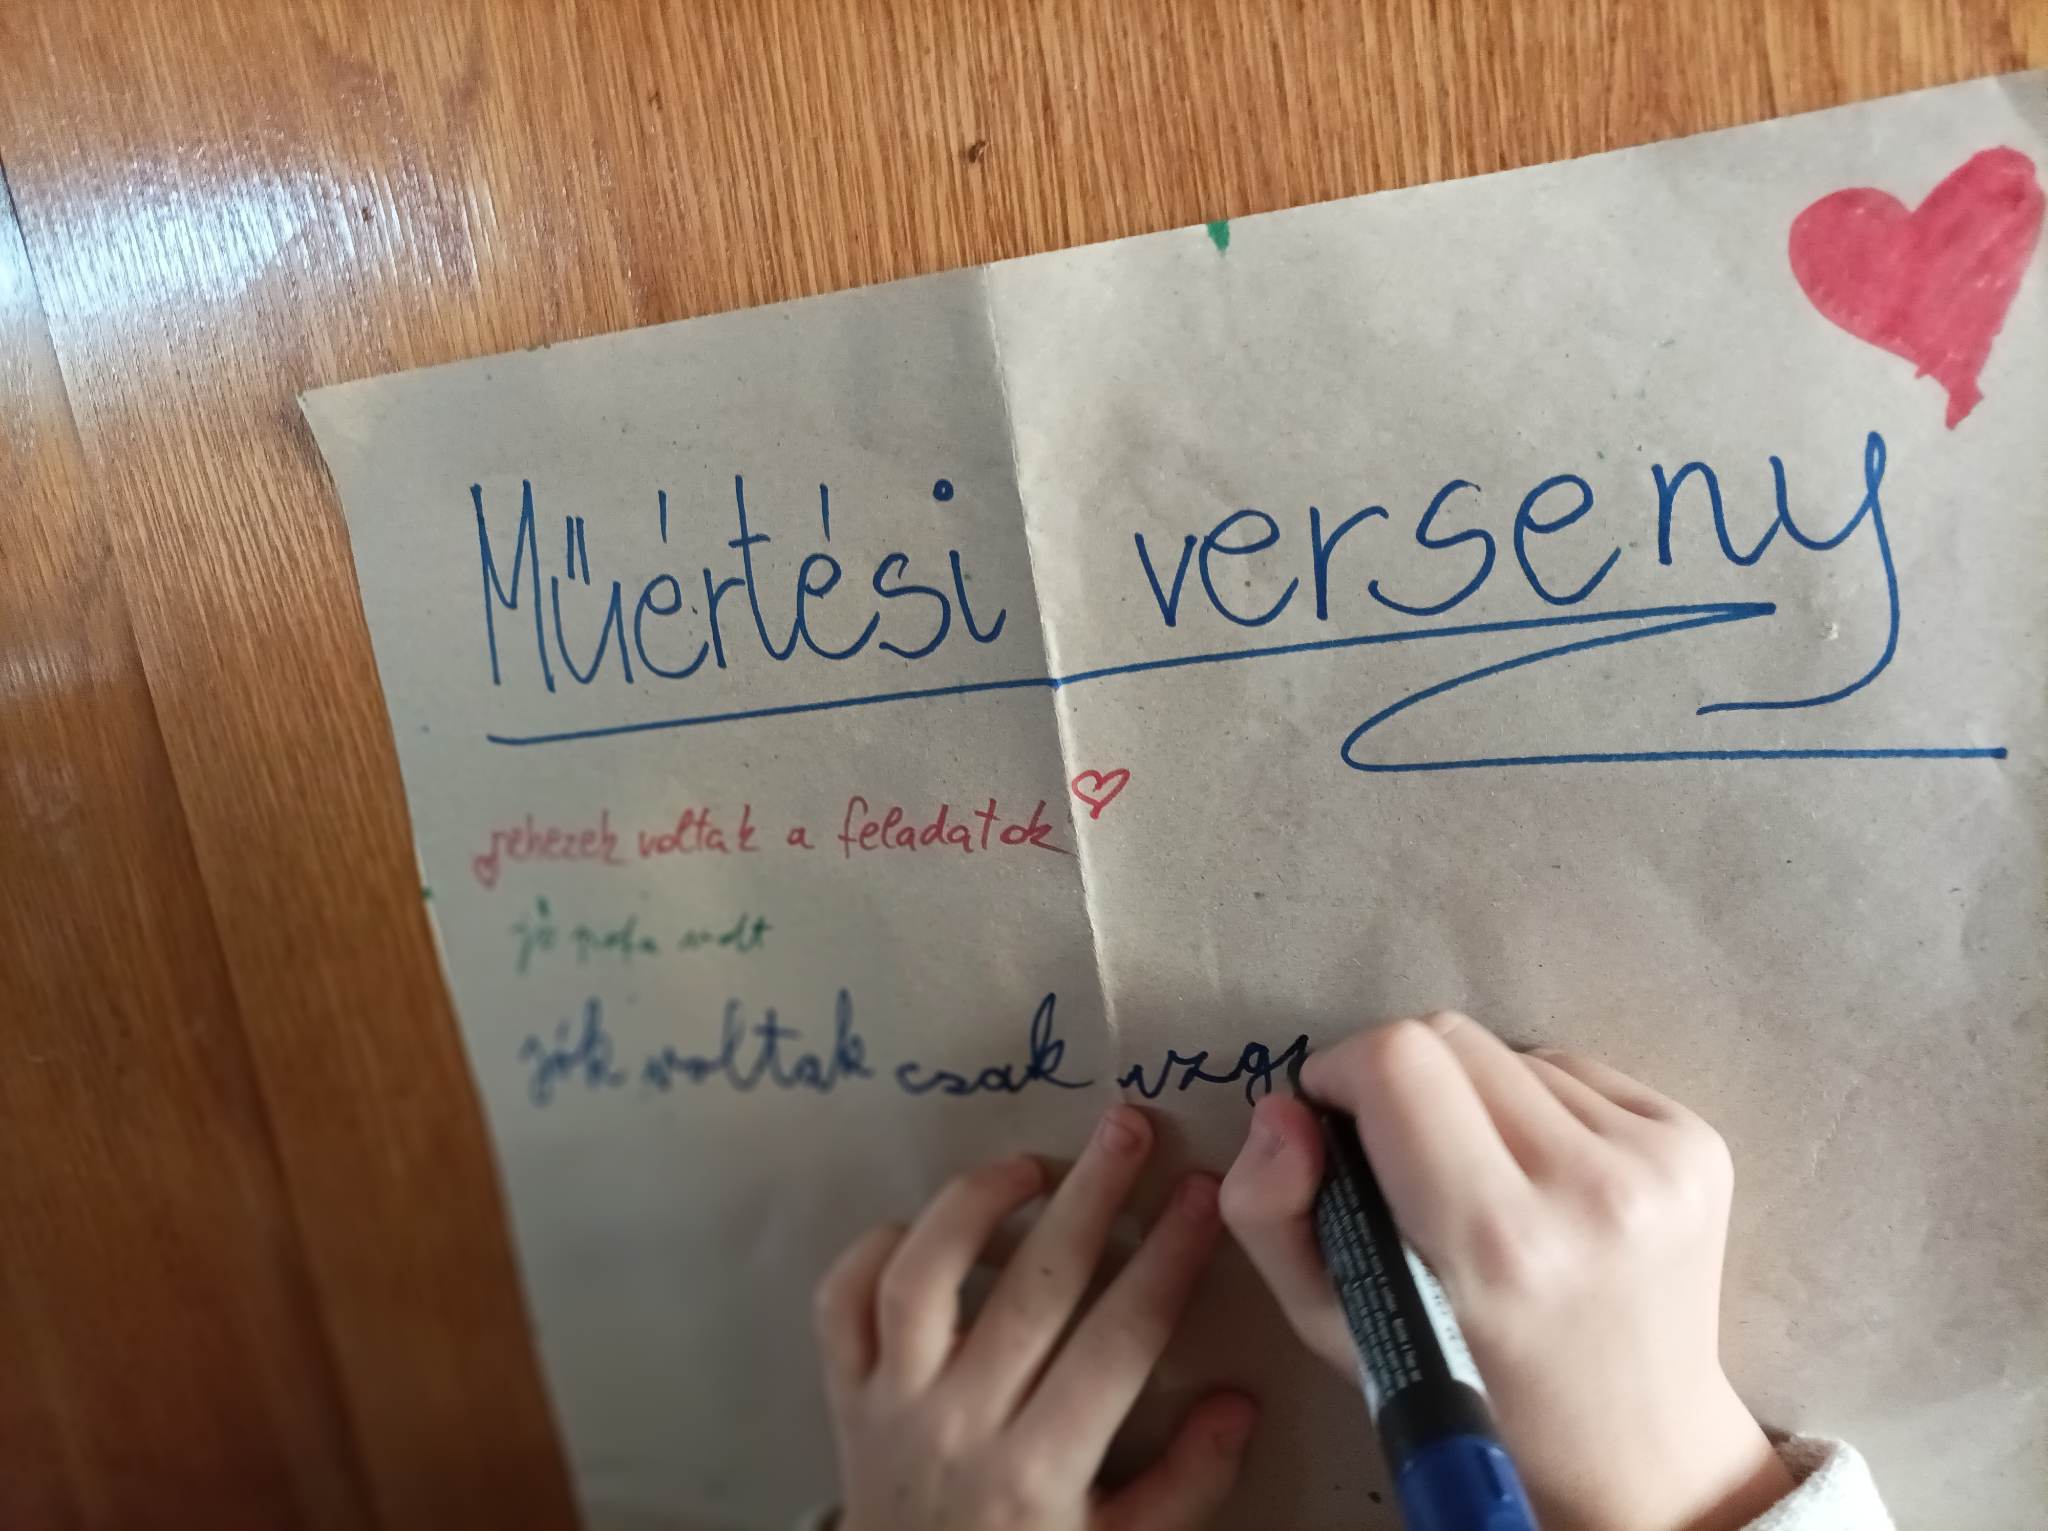 Műértési verseny
nehezek voltak a feladatok
jó pofa volt
jók voltak csak